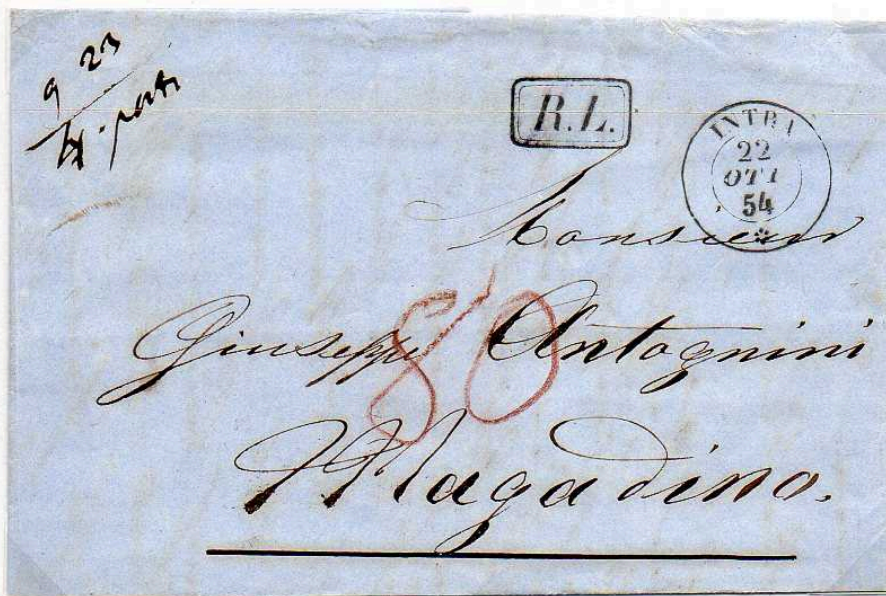 9 23
R.L.
INTRA
22
OTT
54
Monsieur
80
Giuseppe Antognini
Magadino.